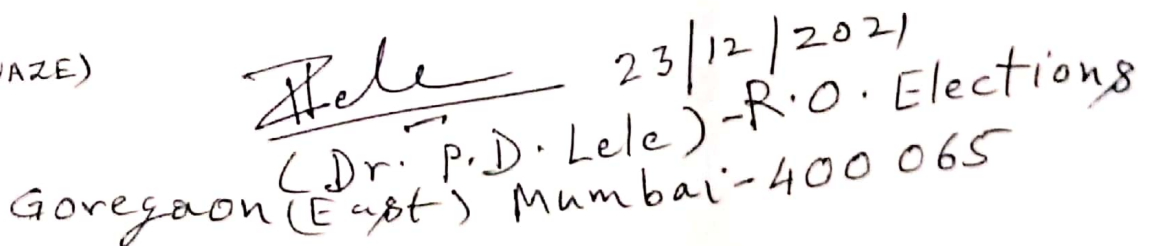 AZE)
Lele 23/12/2021
(Dr. P.D. Lele)-R.O. Elections
Goregaon (East) Mumbai-400 065